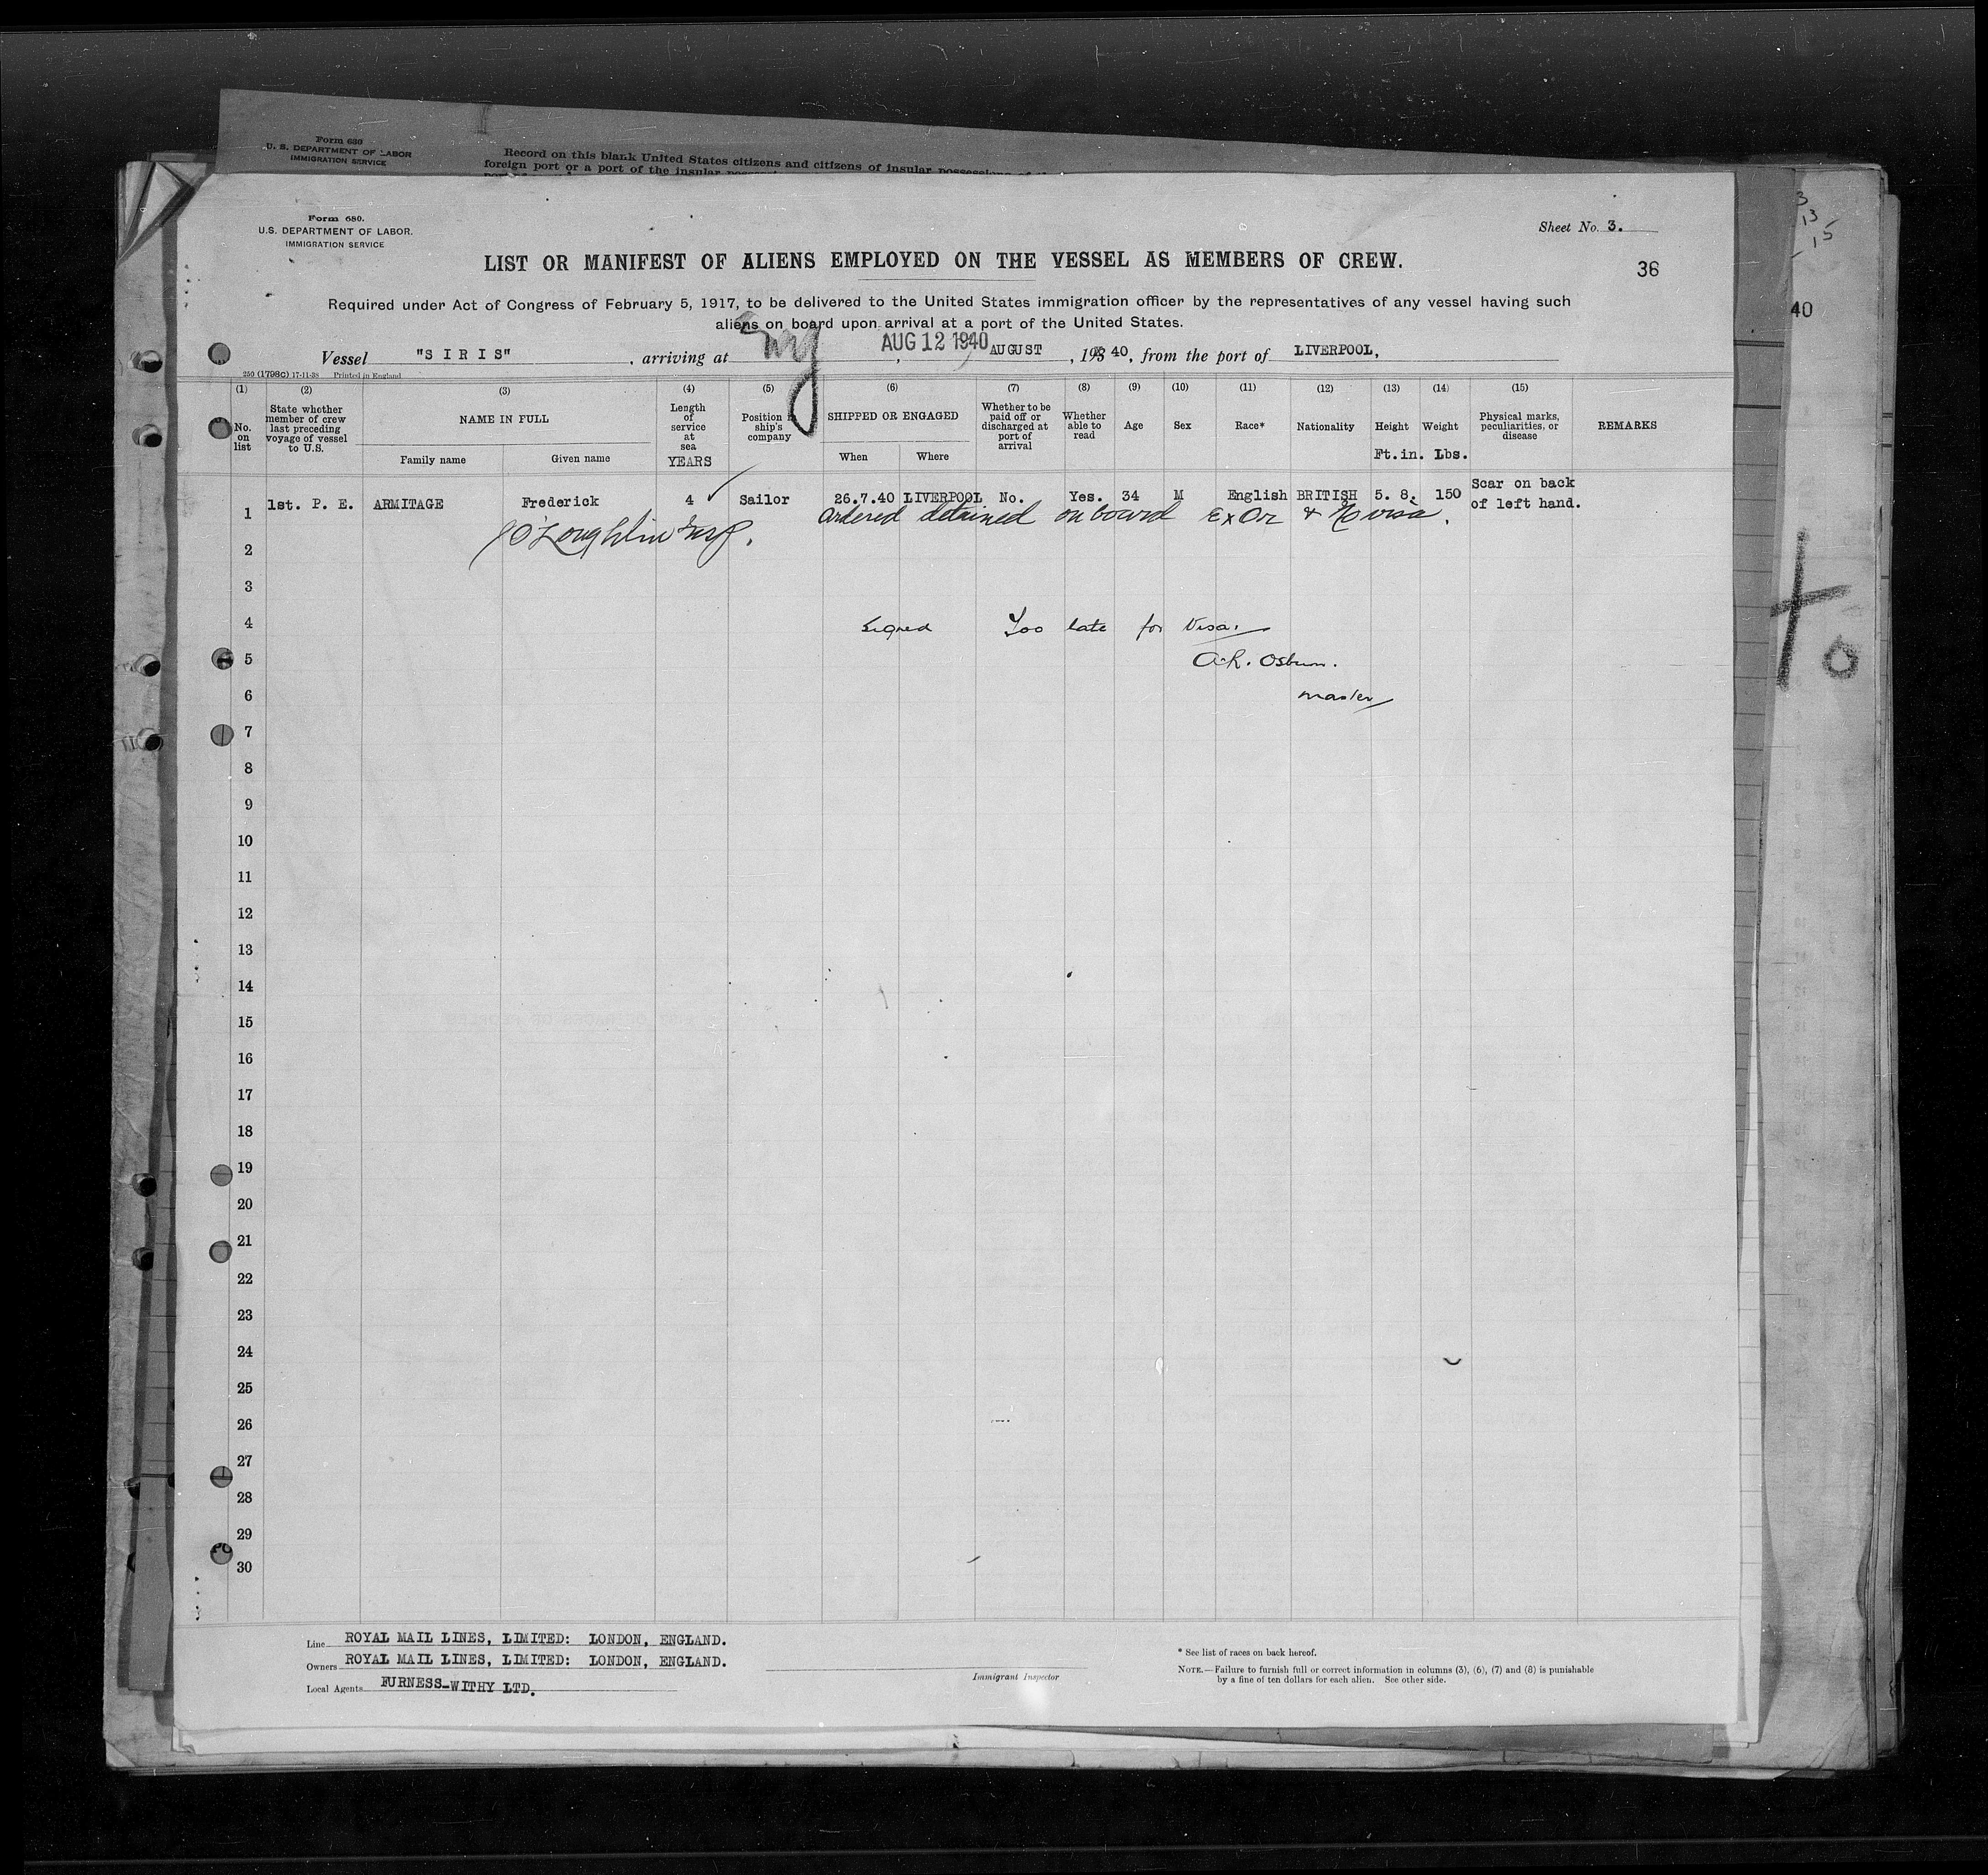 Form 680
U. S. DEPARTMENT OF LABOR
IMMIGRATION SERVICE
Record on this blank United States citizens and citizens of insular possessions
foreign port or a port of the insular
Form 680.
U.S. DEPARTMENT OF LABOR.
IMMIGRATION SERVICE
Sheet No. 3.
LIST OR MANIFEST OF ALIENS EMPLOYED ON THE VESSEL AS MEMBERS OF CREW.
36
Required under Act of Congress of February 5, 1917, to be delivered to the United States immigration officer by the representatives of any vessel having such
aliens on board upon arrival at a port of the United States.
Vessel "S I R I S", arriving at AUG 12 1940 AUGUST, 193 40, from the port of LIVERPOOL,
250 (1798C) 17-11-38 Printed in England
(1) (2) (3) (4) (5) (6) (7) (8) (9) (10) (11) (12) (13) (14) (15)
No. on list
State whether member of crew last preceding voyage of vessel to U.S.
NAME IN FULL
Family name Given name
Length of service at sea YEARS
Position in ship's company
SHIPPED OR ENGAGED
When Where
Whether to be paid off or discharged at port of arrival
Whether able to read
Age
Sex
Race*
Nationality
Height Weight
Ft.in. Lbs.
Physical marks, peculiarities, or disease
REMARKS
1 1st. P. E. ARMITAGE Frederick 4 ✓ Sailor 26.7.40 LIVERPOOL No. Yes. 34 M English BRITISH 5. 8. 150 Scar on back of left hand.
Ordered detained on board Ex Or & No visa.
O'Loughlin Insp.
2
3
4
Signed Too late for Visa.
5
A.R. Osburn.
6
master
7
8
9
10
11
12
13
14
15
16
17
18
19
20
21
22
23
24
25
26
27
28
29
30
Line ROYAL MAIL LINES, LIMITED: LONDON, ENGLAND.
Owners ROYAL MAIL LINES, LIMITED: LONDON, ENGLAND.
Local Agents FURNESS-WITHY LTD.
Immigrant Inspector
* See list of races on back hereof.
NOTE.—Failure to furnish full or correct information in columns (3), (6), (7) and (8) is punishable
by a fine of ten dollars for each alien. See other side.
3
13
15
40